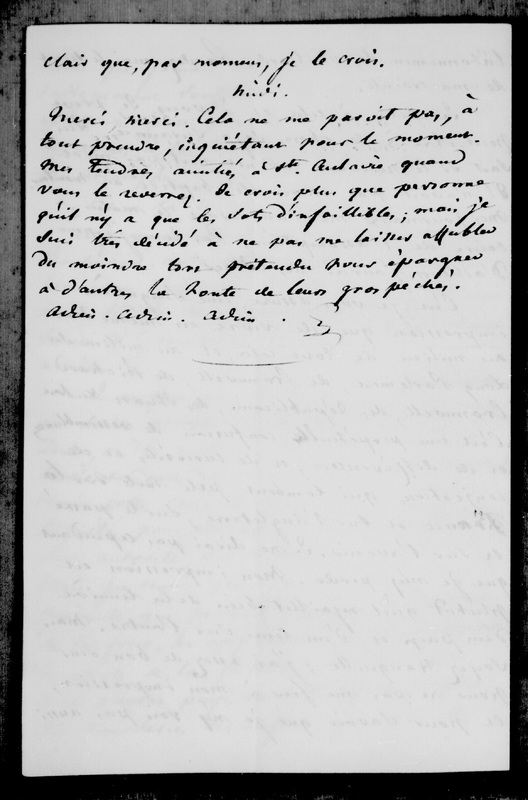 clair que, par momens, je le crois.
Midi.
Merci, merci. Cela ne me paroit pas, à
tout prendre, inquiétant pour le moment.
Mes tendres amitiés à St. Aulaire quand
vous le reverrez. Je crois plus que personne
qu'il n'y a que les sots d'infaillibles ; mais je
suis très décidé à ne pas me laisser affubler
du moindre tort prétendu pour épargner
à d'autres la honte de leurs gros péchés.
Adieu. Adieu. Adieu.